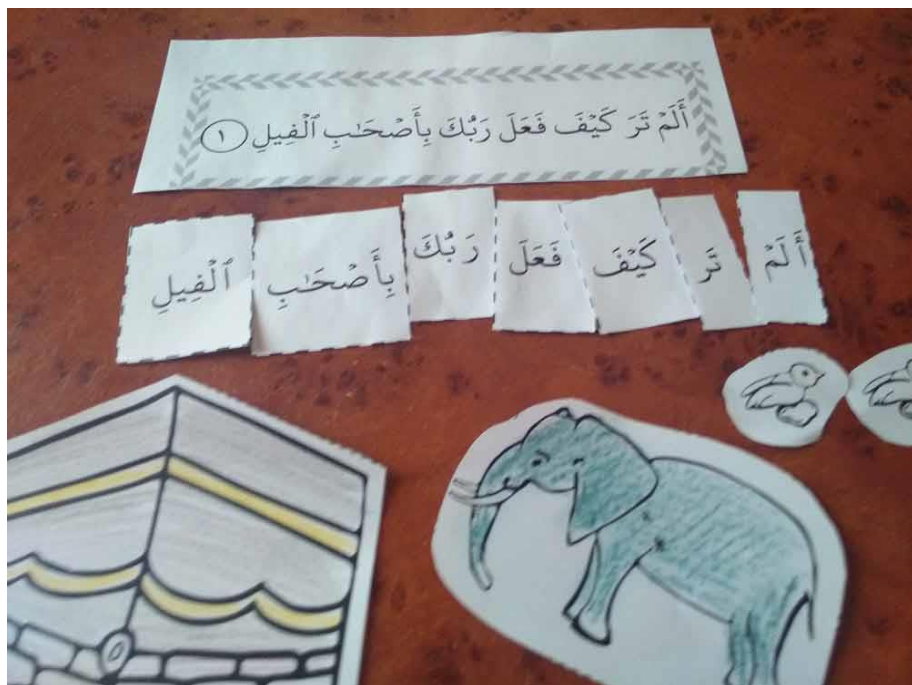 أَلَمْ تَرَ كَيْفَ فَعَلَ رَبُّكَ بِأَصْحَٰبِ ٱلْفِيلِ ١
أَلَمْ تَرَ كَيْفَ فَعَلَ رَبُّكَ بِأَصْحَٰبِ ٱلْفِيلِ